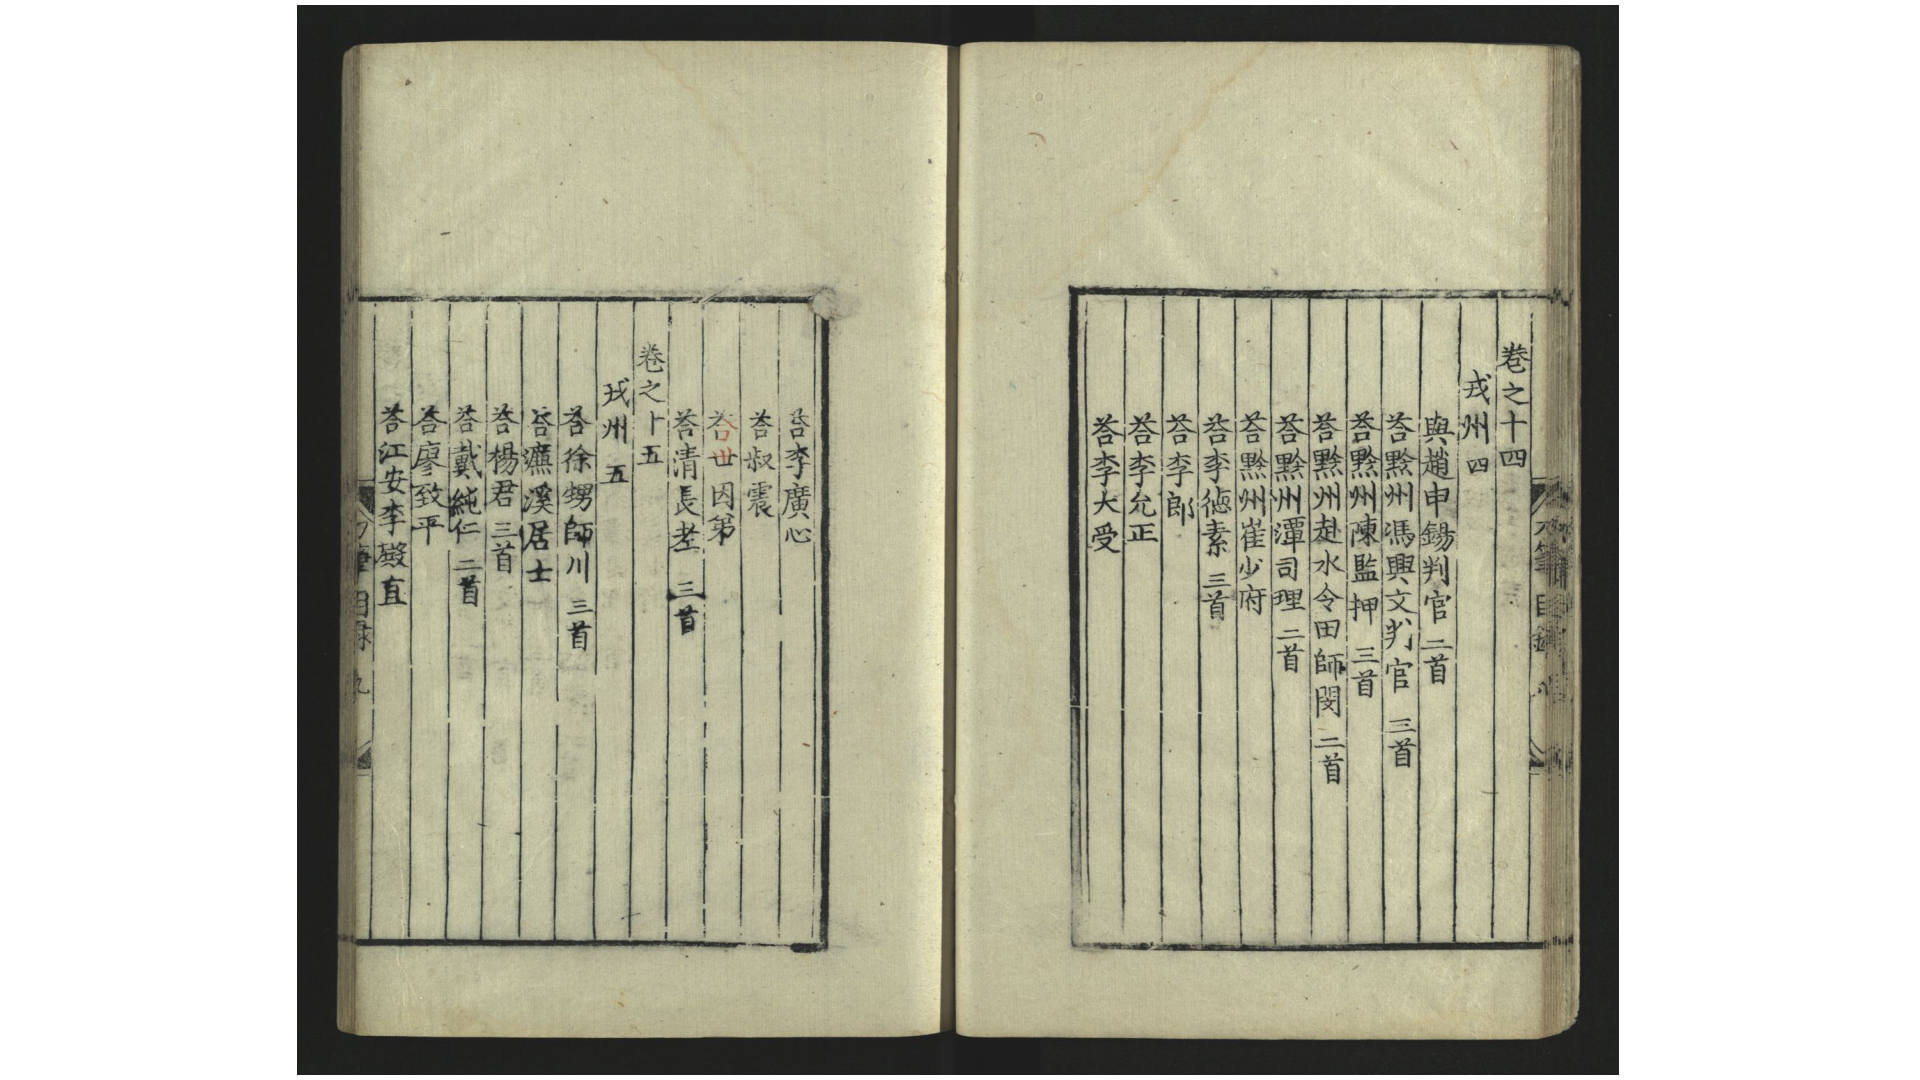 卷之十四
戎州四
與趙申錫判官 二首
荅黔州馮興文判官 三首
荅黔州陳監押 三首
荅黔州赴水令田師閔 二首
荅黔州潭司理 二首
荅黔州崔少府
荅李德素 三首
荅李郎
荅李允正
荅李大受
荅李廣心
荅叔震
荅世因弟
荅清長老 三首
卷之十五
戎州 五
荅徐甥師川 三首
荅濂溪居士
荅楊君 三首
荅戴純仁 二首
荅廖致平
荅江安李殿直